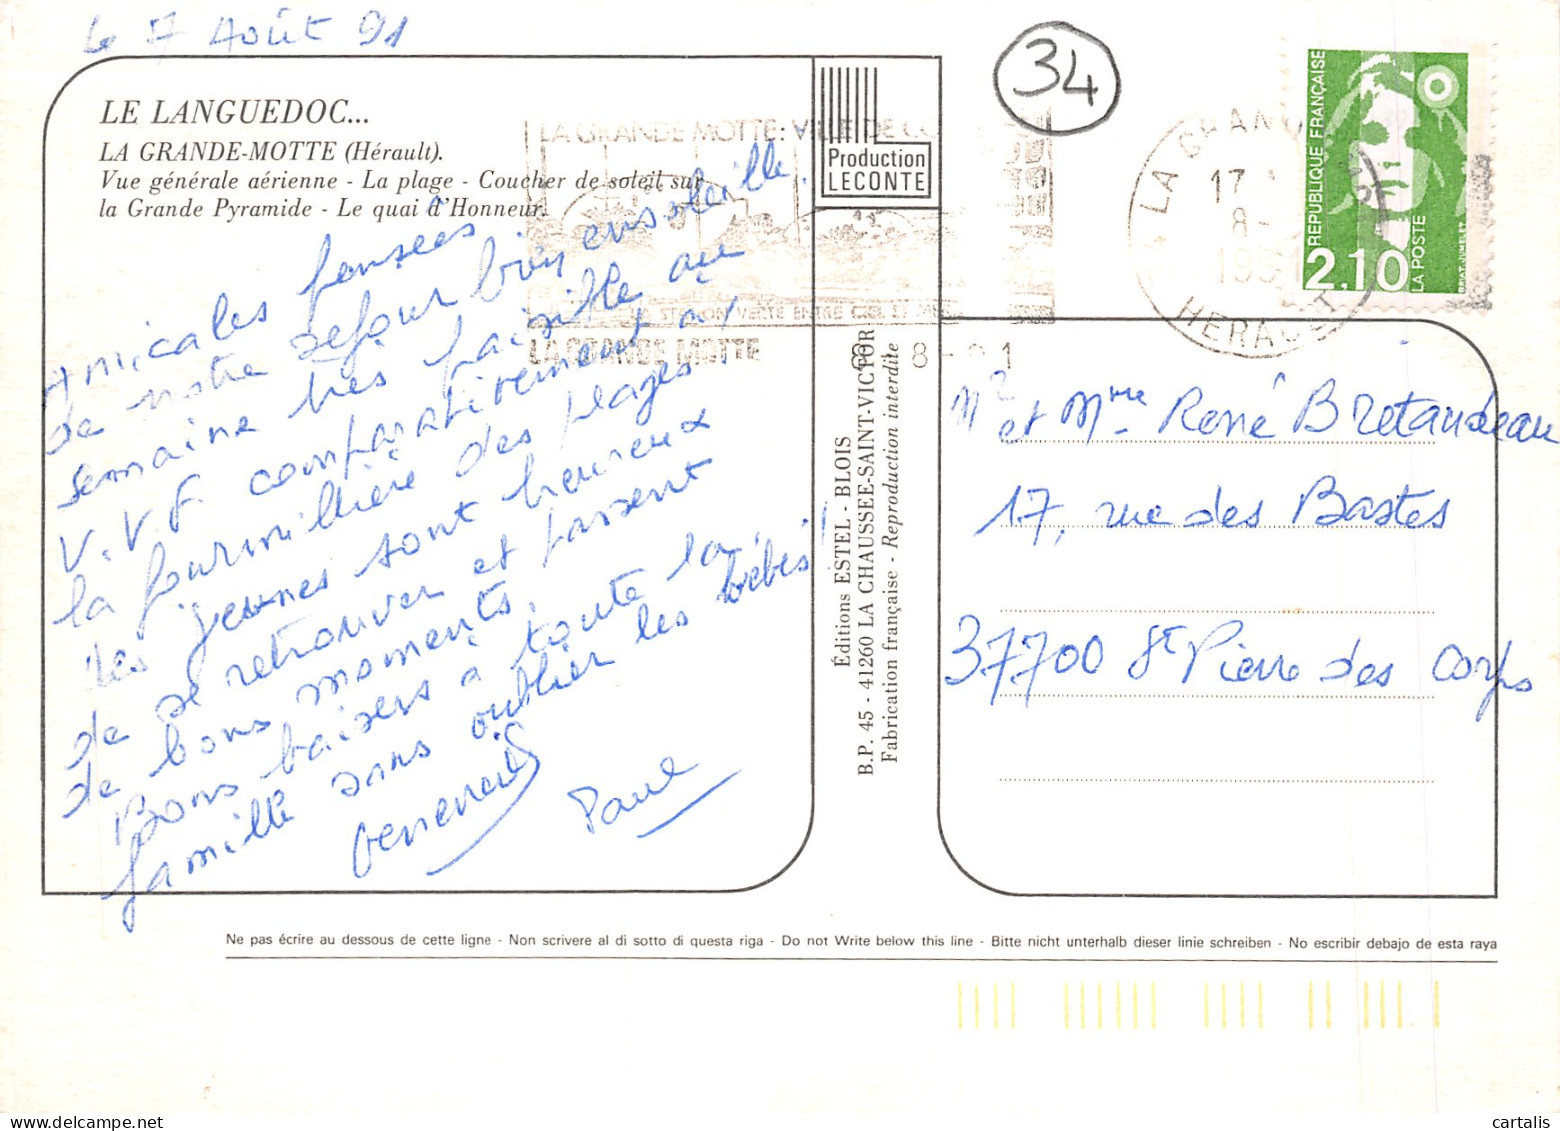 Le 7 Août 91
LE LANGUEDOC...
LA GRANDE-MOTTE (Hérault).
Vue générale aérienne - La plage - Coucher de soleil sur
la Grande Pyramide - Le quai d'Honneur.
Amicales pensées
de notre séjour bien ensoleillé.
semaine très paisible au
V.V.F comparativement à
la fourmilière des plages.
les jeunes sont heureux
de se retrouver et passent
de bons moments.
Bons baisers à toute la
famille sans oublier les bébés!
Paul
Production
LECONTE
LA GRANDE MOTTE: VILLE DE
STATION VERTE ENTRE CIEL ET MER
LA GRANDE MOTTE
8-91
34
LA GRANDE MOTTE
17
8-
1991
HERAULT
RÉPUBLIQUE FRANÇAISE
2,10
LA POSTE
Éditions ESTEL - BLOIS
B.P. 45 - 41260 LA CHAUSSÉE-SAINT-VICTOR
Fabrication française - Reproduction interdite
Mr et Mme René Bretaudeau
17, rue des Bastes
37700 St Pierre des Corps
Ne pas écrire au dessous de cette ligne - Non scrivere al di sotto di questa riga - Do not Write below this line - Bitte nicht unterhalb dieser linie schreiben - No escribir debajo de esta raya
cartalis